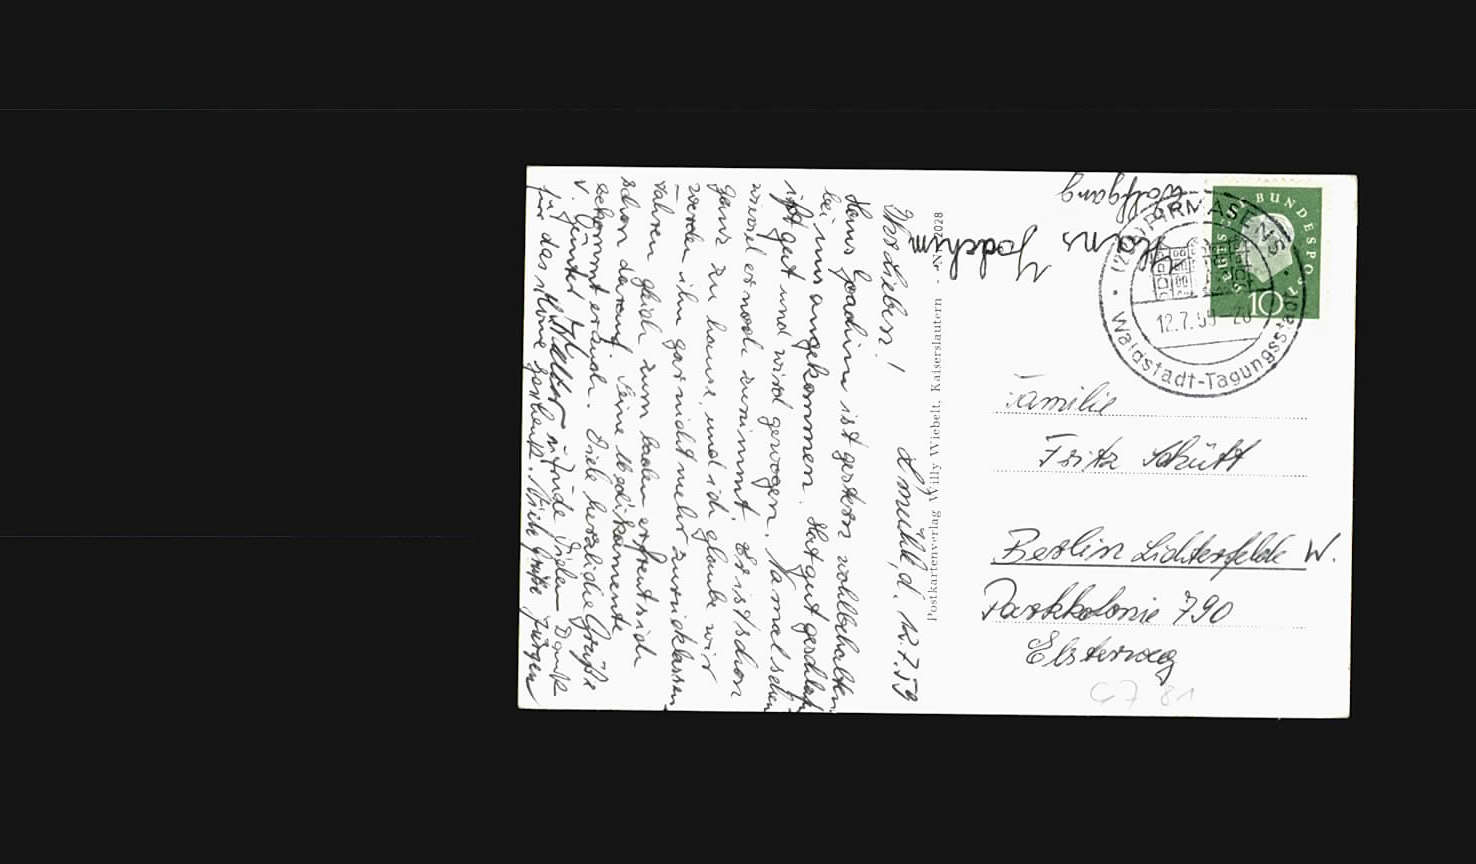 L'mühl, d. 12.7.59
Ihr Lieben!
Hans Joachim ist gestern wohlbehalten
bei uns angekommen. Hat gut geschlafen
ißt gut und wird gewogen. Na mal sehen
wieviel er noch zunimmt. Er ist schon
ganz zu hause, und ich glaube wir
werden ihn gar nicht mehr zurücklassen
fahren gleich zum baden er freut sich
schon darauf. Seine Medikamente
bekommt er auch. Viele herzliche Grüße
v. Günter Vielen Dank
für das schöne Geschenk. Viele Grüße Jürgen
Hans Joachim
Wolfgang
Postkartenverlag Willy Wiebelt, Kaiserslautern - 2028
PIRMASENS
12.7.59-20
Waldstadt-Tagungsstadt
DEUTSCHE BUNDESPOST
10
Familie
Fritz Schütt
Berlin Lichterfelde W.
Parkkolonie 790
Elsterweg